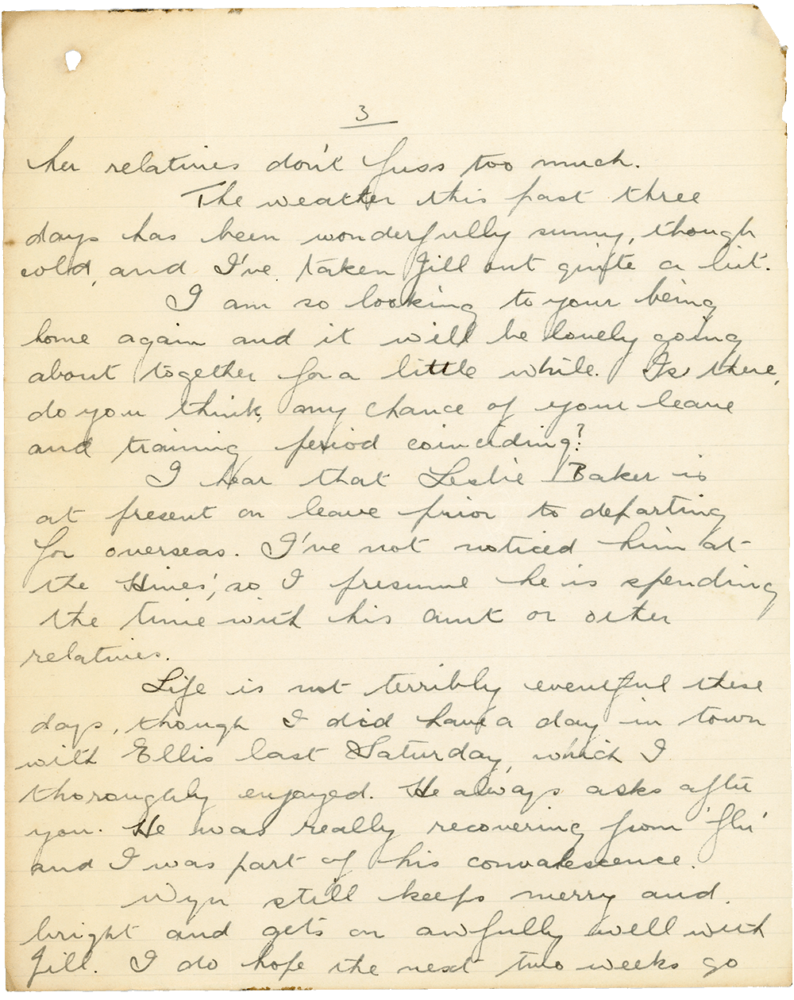 3
her relatives don't fuss too much.
The weather this past three
days has been wonderfully sunny, though
cold, and I've taken Jill out quite a bit.
I am so looking to your being
home again and it will be lovely going
about together for a little while. Is there,
do you think, any chance of your leave
and training period coinciding?
I hear that Leslie Baker is
at present on leave prior to departing
for overseas. I've not noticed him at
the Hines', so I presume he is spending
the time with his aunt or other
relatives.
Life is not terribly eventful these
days, though I did have a day in town
with Ellis last Saturday, which I
thoroughly enjoyed. He always asks after
you. He was really recovering from 'flu'
and I was part of his convalescence.
Wyn still keeps merry and
bright and gets on awfully well with
Jill. I do hope the next two weeks go